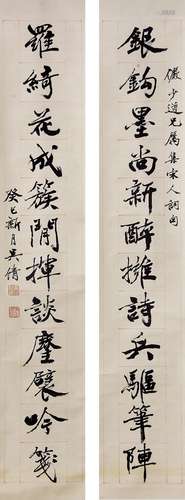 儼少道兄屬集宋人詞句
銀鉤墨尚新醉擁詩兵驅筆陣
羅綺花成簇閒揮談麈襞吟箋
癸巳新月吳倩